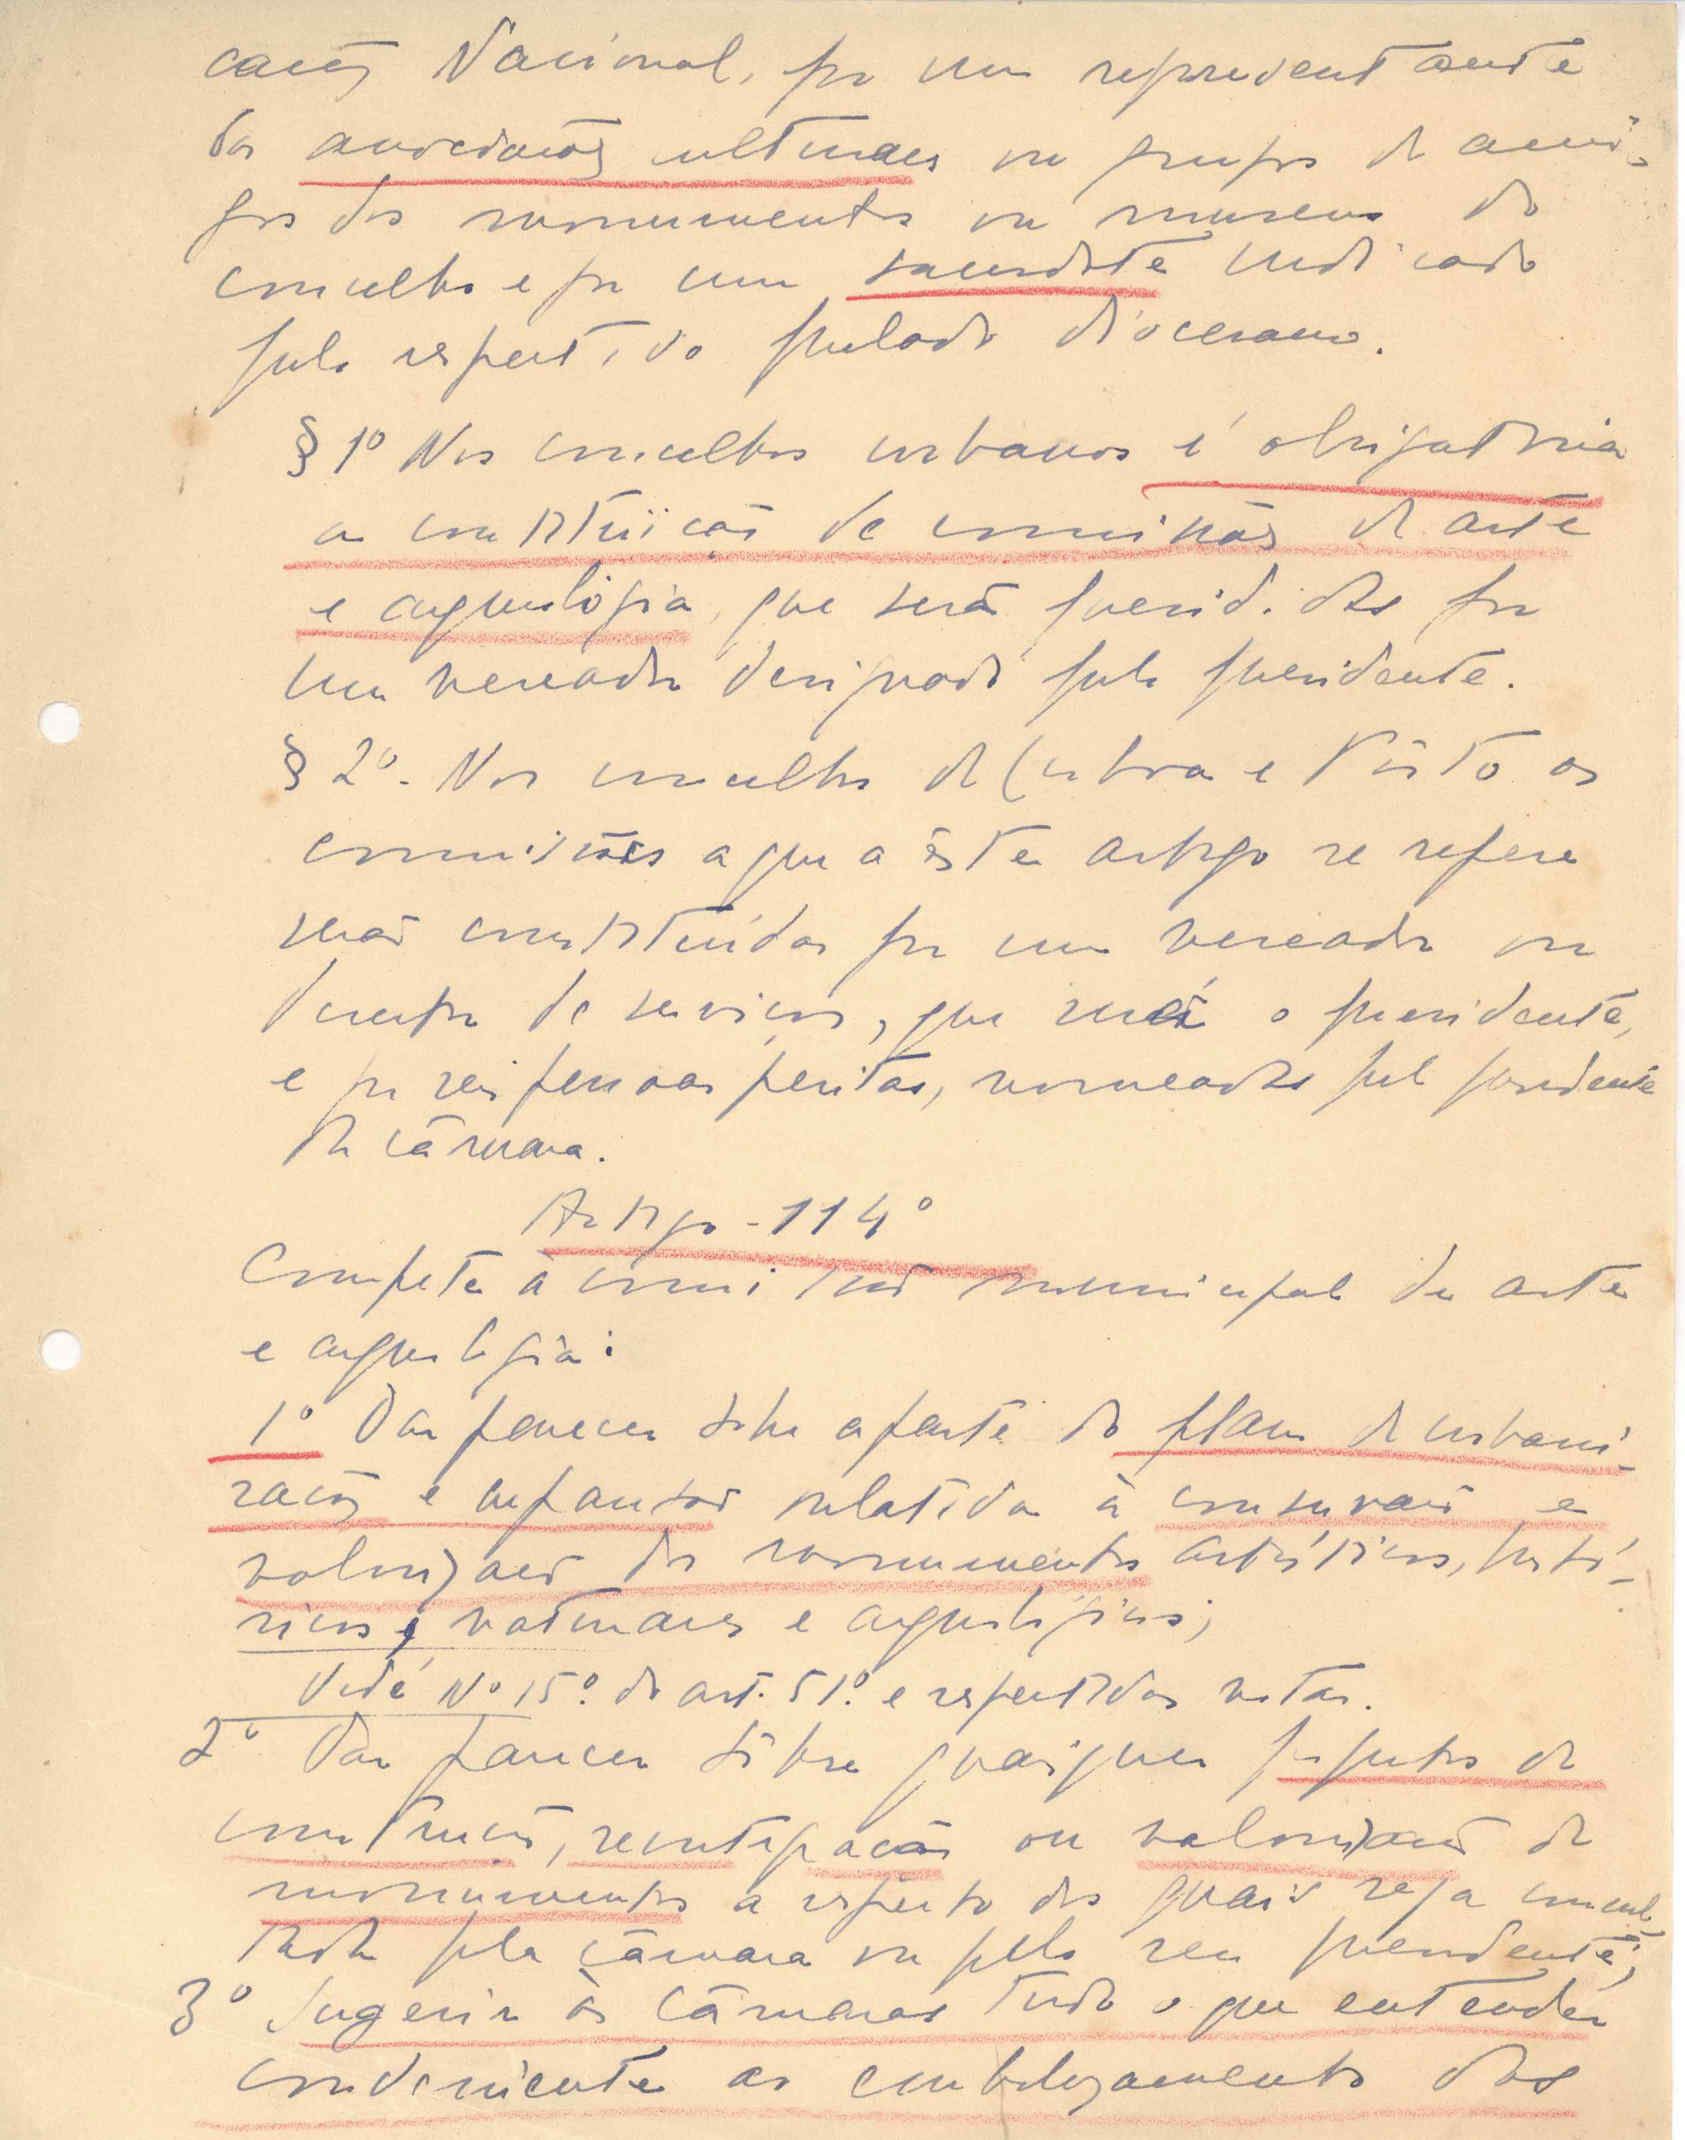 cação Nacional, por um representante
das associações culturais ou grupos de ami-
gos dos monumentos ou museus do
concelho e por um sacerdote indicado
pelo respectivo prelado diocesano.
§ 1º Nos concelhos urbanos é obrigatória
a constituição de comissões de arte
e arqueologia, que será presididas por
um vereador designado pelo presidente.
§ 2º. Nos concelhos de Lisboa e Pôrto as
comissões a que a êste artigo se refere
serão constituídas por um vereador ou
director de serviços, que será o presidente,
e por seis pessoas peritas, nomeadas pelo presidente
da câmara.
Artigo - 114º
Compete à comissão municipal de arte
e arqueologia:
1º Dar parecer sobre a parte do plano de urbani-
zação e expansão relativa à conservação e
valorização dos monumentos artísticos, histó-
ricos, naturais e arqueológicos;
Vide Nº 15º. do art. 51º. e respectivas notas.
2º Dar parecer sôbre quaisquer projectos de
construção, reintegração ou valorização de
monumentos a respeito dos quais seja consul-
tada pela câmara ou pelo seu presidente;
3º Sugerir às câmaras tudo o que entender
conveniente ao embelezamento das